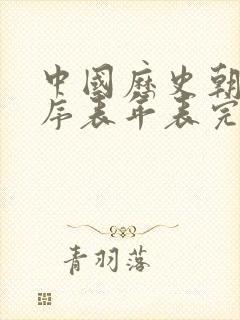 中國歷史朝
序表年表完
青羽落